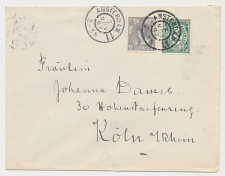 AMSTERDAM
AMSTERDAM
Fräulein
Johanna Dames.
30 Hohenstaufenring,
Köln a/Rhein